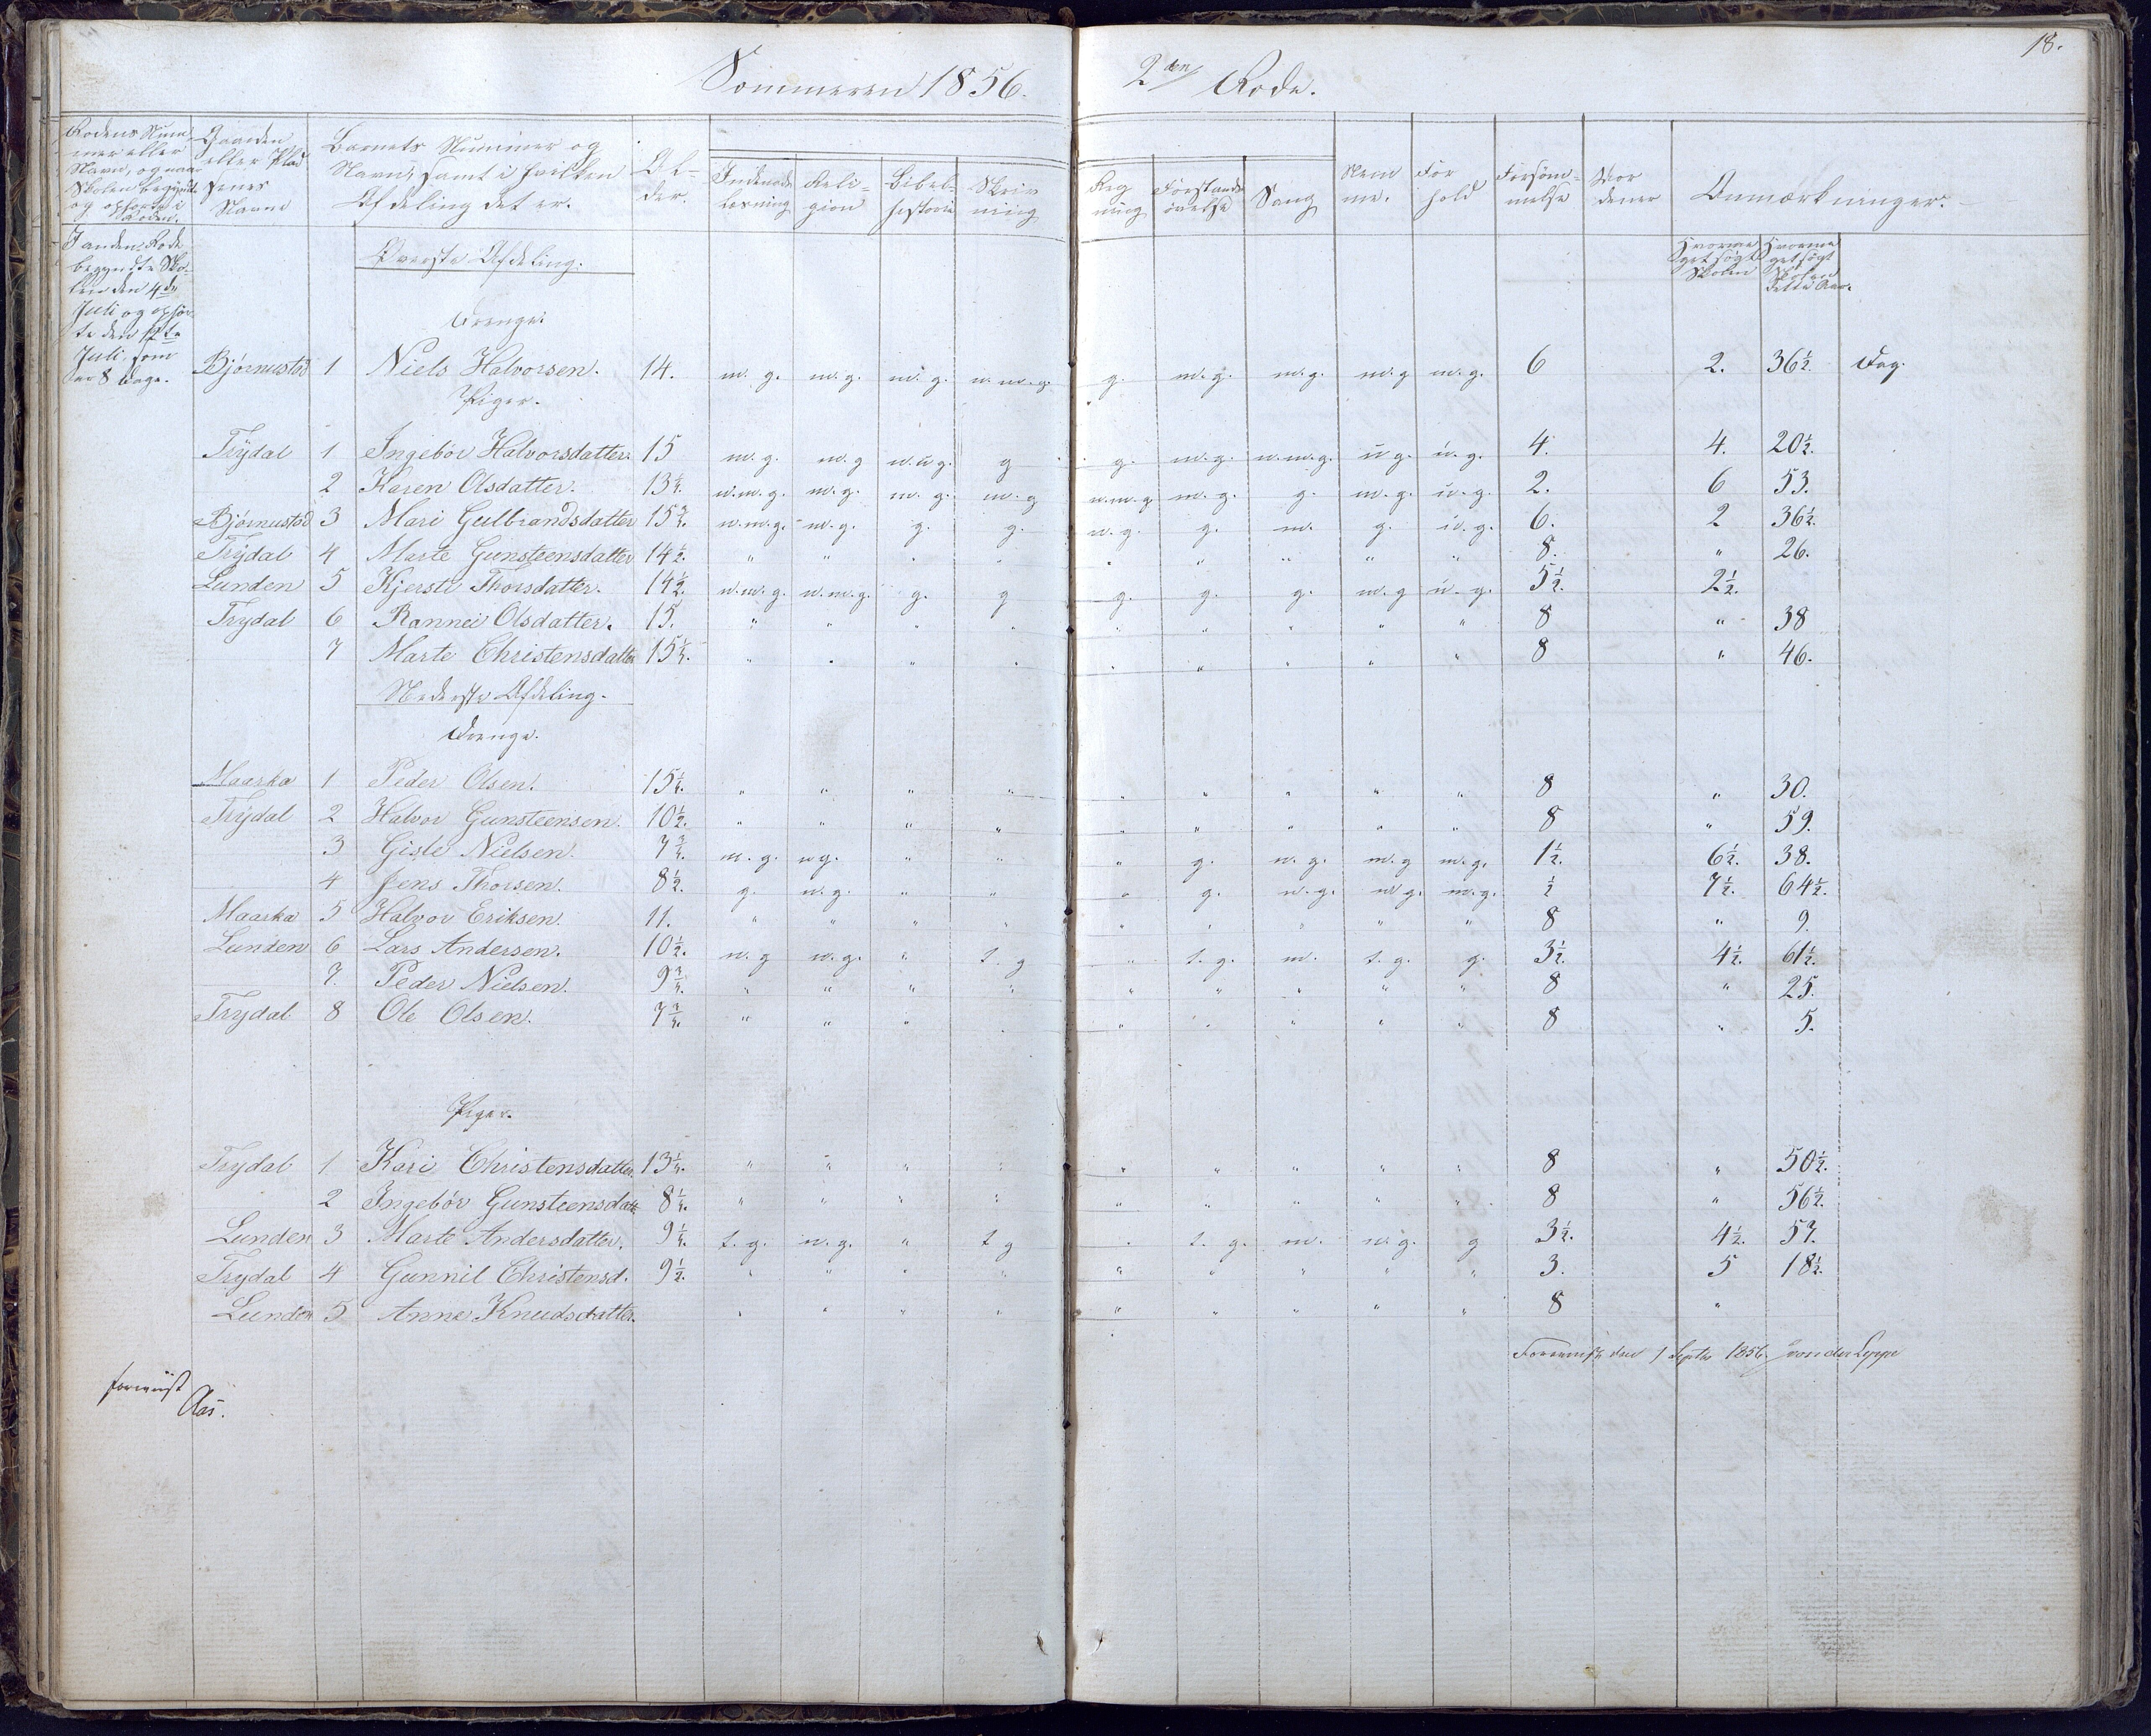 18.
Sommeren 1856. 2den Rode.
Rodens Num-
mer eller
Navn, og naar
Skolen begyndte
og ophørte i
Roden.
Gaarden
eller Plad
senes
Navn
Barnets Nummer og
Navn, samt i hvilken
Afdeling det er.
Al-
der.
Indenads
læsning
Reli-
gion
Bibel-
historie
Skriv
ning
Reg
ning
Forstands
øvelse
Sang
Nem
me.
For
hold
Forsøm-
melse
Anmærkninger.
Hvorme
get søgt
Skolen
Hvorme
get søgt
Skolen
dette Aar.
I anden Rode
begyndte Sko-
len den 4de
Juli og ophør
te den
Juli, som
er 8 Dage.
Øverste Afdeling.
Drenge.
Bjørnustad 1 Niels Halvorsen. 14. m. g. m. g. m. g. n. m. g. g. m. g. m. g. m. g m. g. 6 2. 36½. Dag.
Piger.
Trydal 1 Ingebør Halvorsdatter. 15 m. g. m. g g g. m. g. n. m. g. u g. u. g. 4. 4. 20½.
2 Karen Olsdatter. 13¼. n. m. g. m. g. m. g. m. g n. m. g m. g. g. m. g. u. g. 2. 6 53.
Bjørnustad 3 Mari Gulbrandsdatter 15¾. n. m. g. m. g. g. g. n. g. g. m. g. u. g. 6. 2 36½.
Trydal 4 Marte Gunsteensdatter 14½. " " " " " " " " " 8. " 26.
Lunden 5 Kjersti Thorsdatter. 14½. n. m. g. n. m. g. g. g g. g. g. m. g u. g. 5½. 2½.
Trydal 6 Rannei Olsdatter. 15. " " " " " " " " " 8 " 38
7 Marte Christensdatter 15¼. " " " " " " " " " 8 " 46.
Nederste Afdeling.
Drenge.
Maarka 1 Peder Olsen. 15¼. " " " " " " " " " 8 " 30.
Trydal 2 Halvor Gunsteensen. 10½. " " " " " " " " " 8 " 59.
3 Gisle Nielsen. 7¾. m. g. n g. " " " g. n. g. m. g m. g. 1½. 6½. 38.
4 Jens Thorsen. 8½. g. n. g. " " " g. n. g. m g. m. g. ½ 7½. 64½.
Maarka 5 Halvor Eriksen. 11. " " " " " " " " " 8 " 9.
Lunden 6 Lars Andersen. 10½. n. g n. g. " t. g " t. g. m. t. g. g. 3½. 4½. 61½.
7. Peder Nielsen. 9¾. " " " " " " " " " 8 " 25.
Trydal 8 Ole Olsen. 7¾. " " " " " " " " 8 " 5.
Piger.
Trydal 1 Kari Christensdatter. 13¼. " " " " " " " " " 8 " 50½.
2 Ingebør Gunsteensdatt 8¼. " " " " " " " " " 8 " 56½.
Lunden 3 Marte Andersdatter. 9¼. t. g. n. g. " t g " t. g. m. n. g. g 3½. 4½. 57.
Trydal 4 Gunnil Christensd. 9½. " " " " " " " " " 3. 5 18½.
Lunden 5 Anne Knudsdatter. " " " " " " " " " 8 "
Foreviist den 1 Septbr 1856. von der Lippe
foreviist
Aas.